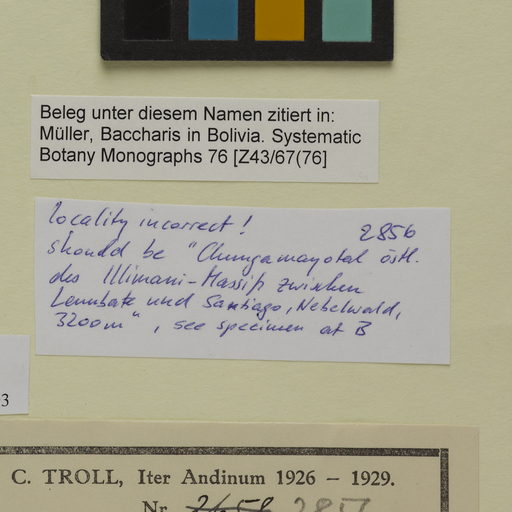 Beleg unter diesem Namen zitiert in:
Müller, Baccharis in Bolivia. Systematic
Botany Monographs 76 [Z43/67(76]
locality incorrect! 2856
should be "Chungamayotal östl.
des Illimani-Massifs zwischen
Lambate und Santiago, Nebelwald,
3200m", see specimen at B
3
C. TROLL, Iter Andinum 1926 – 1929.
Nr.